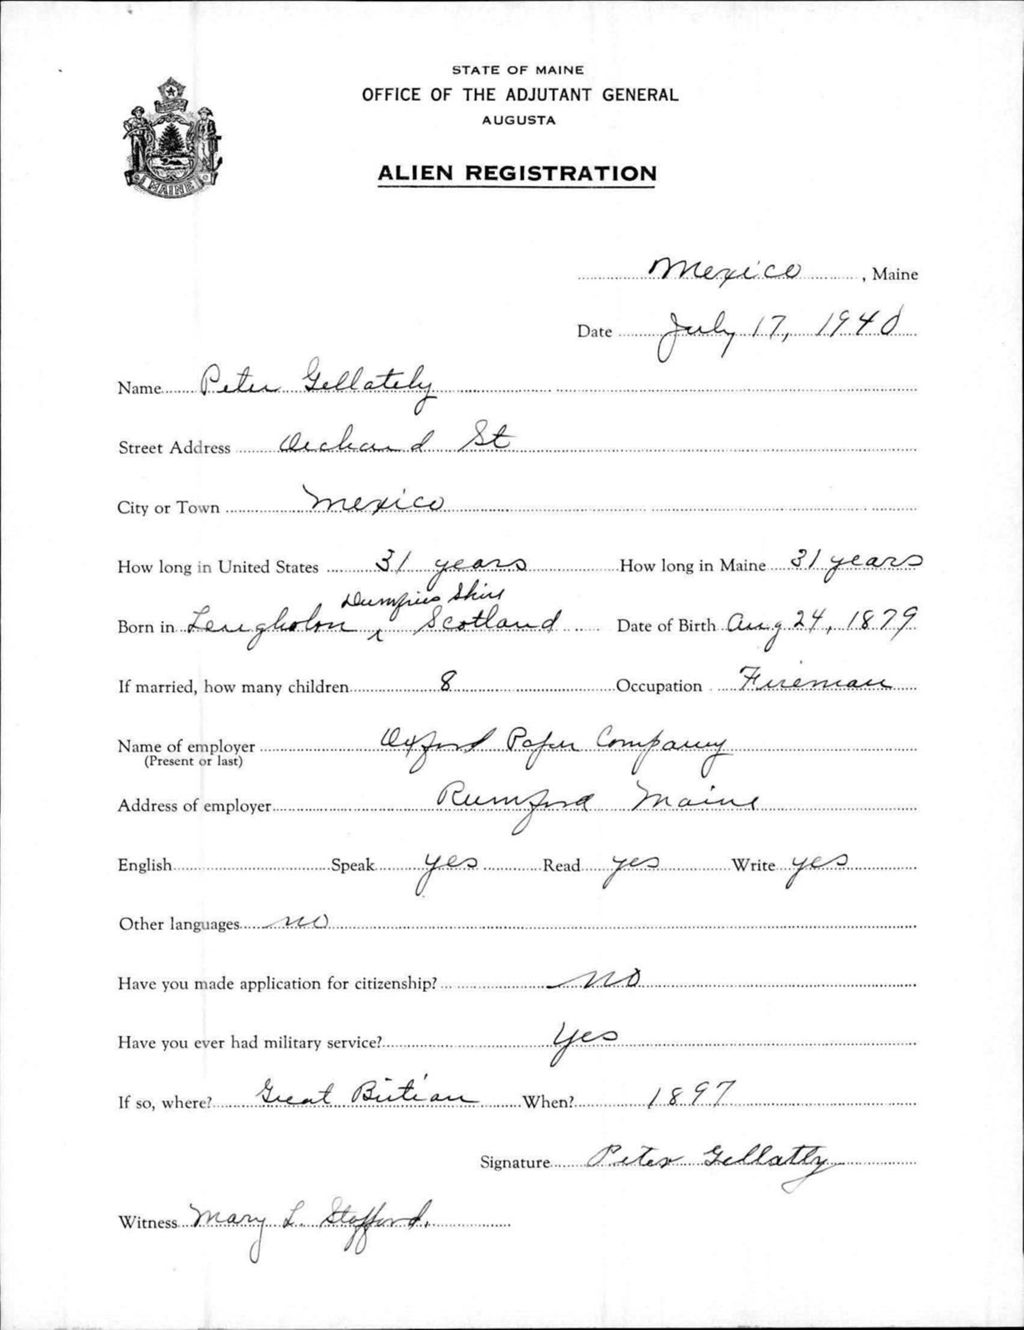 STATE OF MAINE
OFFICE OF THE ADJUTANT GENERAL
AUGUSTA
ALIEN REGISTRATION
MAINE
Mexico, Maine
Date July 17, 1940
Name Peter Gellately
Street Address Orchard St
City or Town Mexico
How long in United States 31 years How long in Maine 31 years
Dumfries Shire
Born in Langholon Scotland Date of Birth Aug 24, 1879
If married, how many children 8 Occupation Fireman
Name of employer Oxford Paper Company
(Present or last)
Address of employer Rumford Maine
English Speak yes Read yes Write yes
Other languages no
Have you made application for citizenship? no
Have you ever had military service? yes
If so, where? Great Britian When? 1897
Signature Peter Gellatly
Witness Mary L. Stafford.